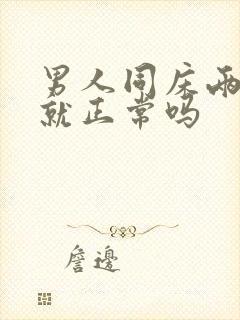 男人同床两
就正常吗
詹邊